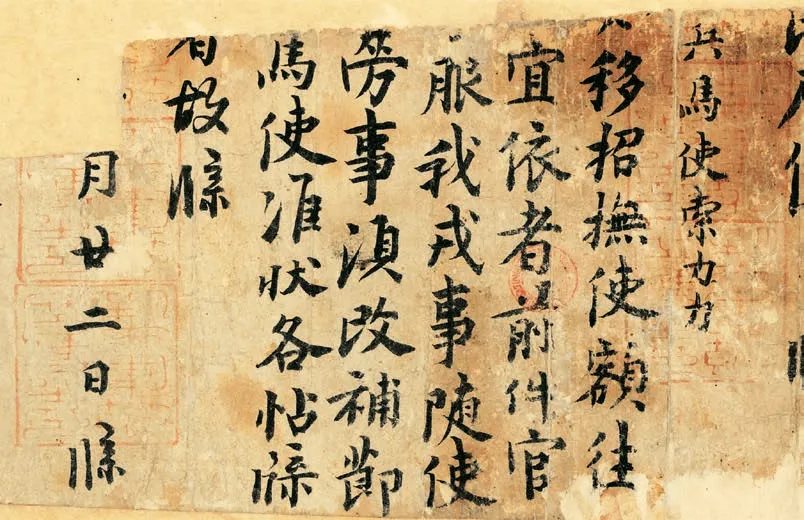 兵馬使索力力
移招撫使額往
宜依者前件官
服我戎事随使
勞事須改補節
馬使准状各帖牒
者故牒
月廿二日牒